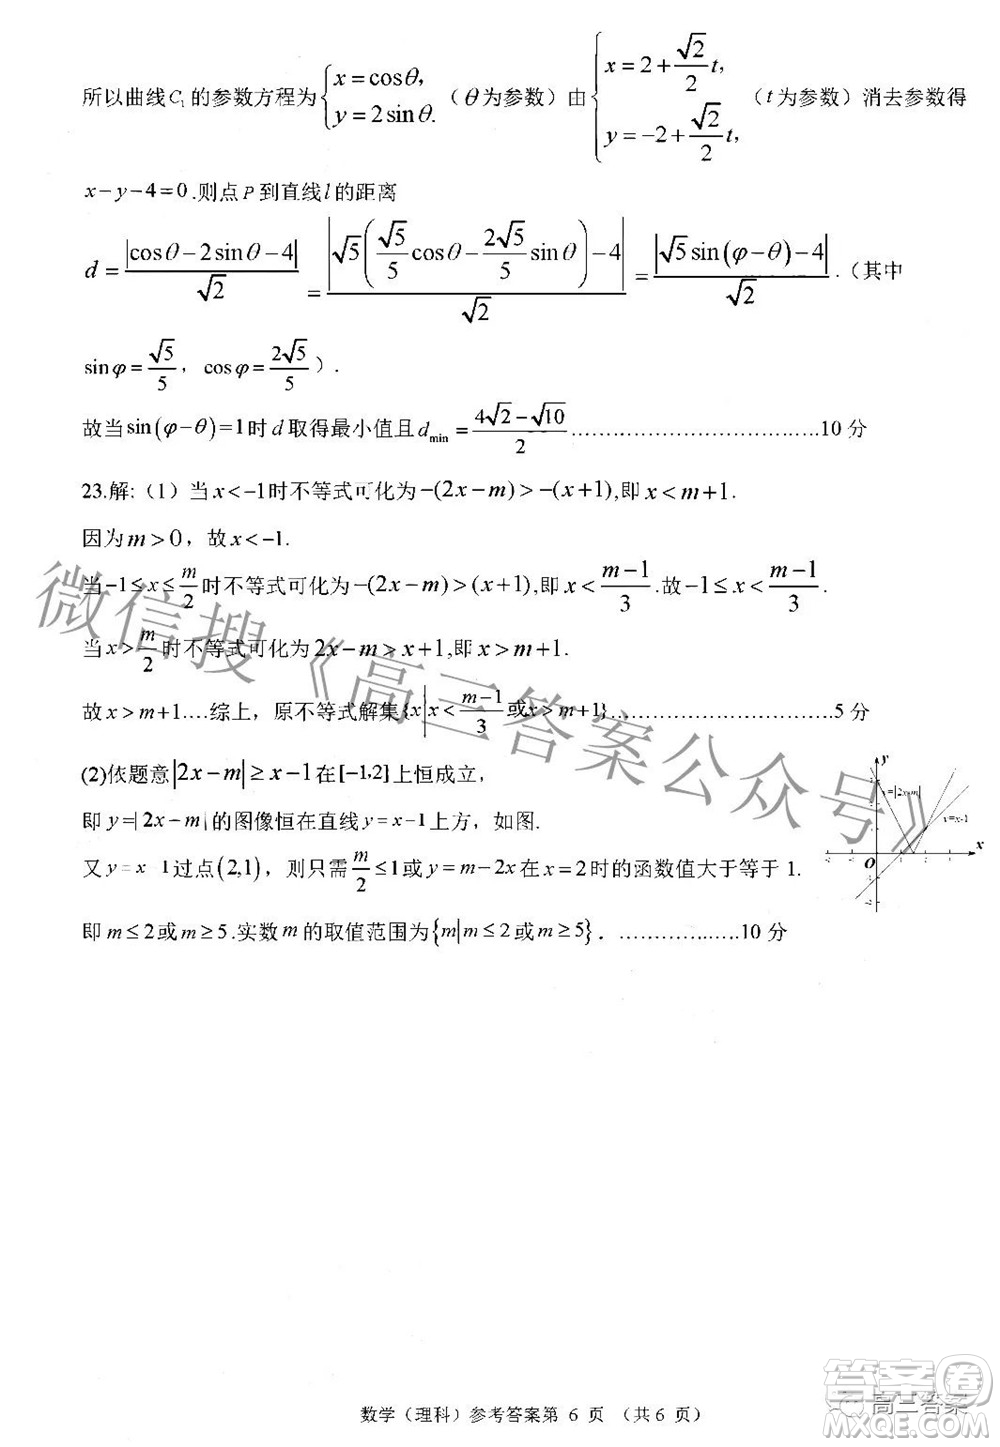 所以曲线C₁的参数方程为{x=cosθ, y=2sinθ.（θ为参数）由{x=2+(√2/2)t, y=-2+(√2/2)t,（t为参数）消去参数得
x-y-4=0.则点P到直线l的距离
d=|cosθ-2sinθ-4|/√2=|√5((√5/5)cosθ-(2√5/5)sinθ)-4|/√2=|√5sin(φ-θ)-4|/√2.（其中
sinφ=√5/5，cosφ=2√5/5）.
故当sin(φ-θ)=1时d取得最小值且d_min=(4√2-√10)/2……………………………10分
23.解:（1）当x<-1时不等式可化为-(2x-m)>-(x+1),即x<m+1.
因为m>0，故x<-1.
当-1≤x≤m/2时不等式可化为-(2x-m)>(x+1),即x<(m-1)/3.故-1≤x<(m-1)/3.
当x>m/2时不等式可化为2x-m>x+1,即x>m+1.
故x>m+1.…综上，原不等式解集{x|x<(m-1)/3或x>m+1}……………………………5分
(2)依题意|2x-m|≥x-1在[-1,2]上恒成立，
即y=|2x-m|的图像恒在直线y=x-1上方，如图.
又y=x 1过点(2,1)，则只需m/2≤1或y=m-2x在x=2时的函数值大于等于1.
即m≤2或m≥5.实数m的取值范围为{m|m≤2或m≥5}．………………10分
y
y=|2x-m|
y=x-1
x
O
微信搜《高三答案公众号》
数学（理科）参考答案第 6 页 （共 6 页）
高三答案
答案卷
MXQE.COM